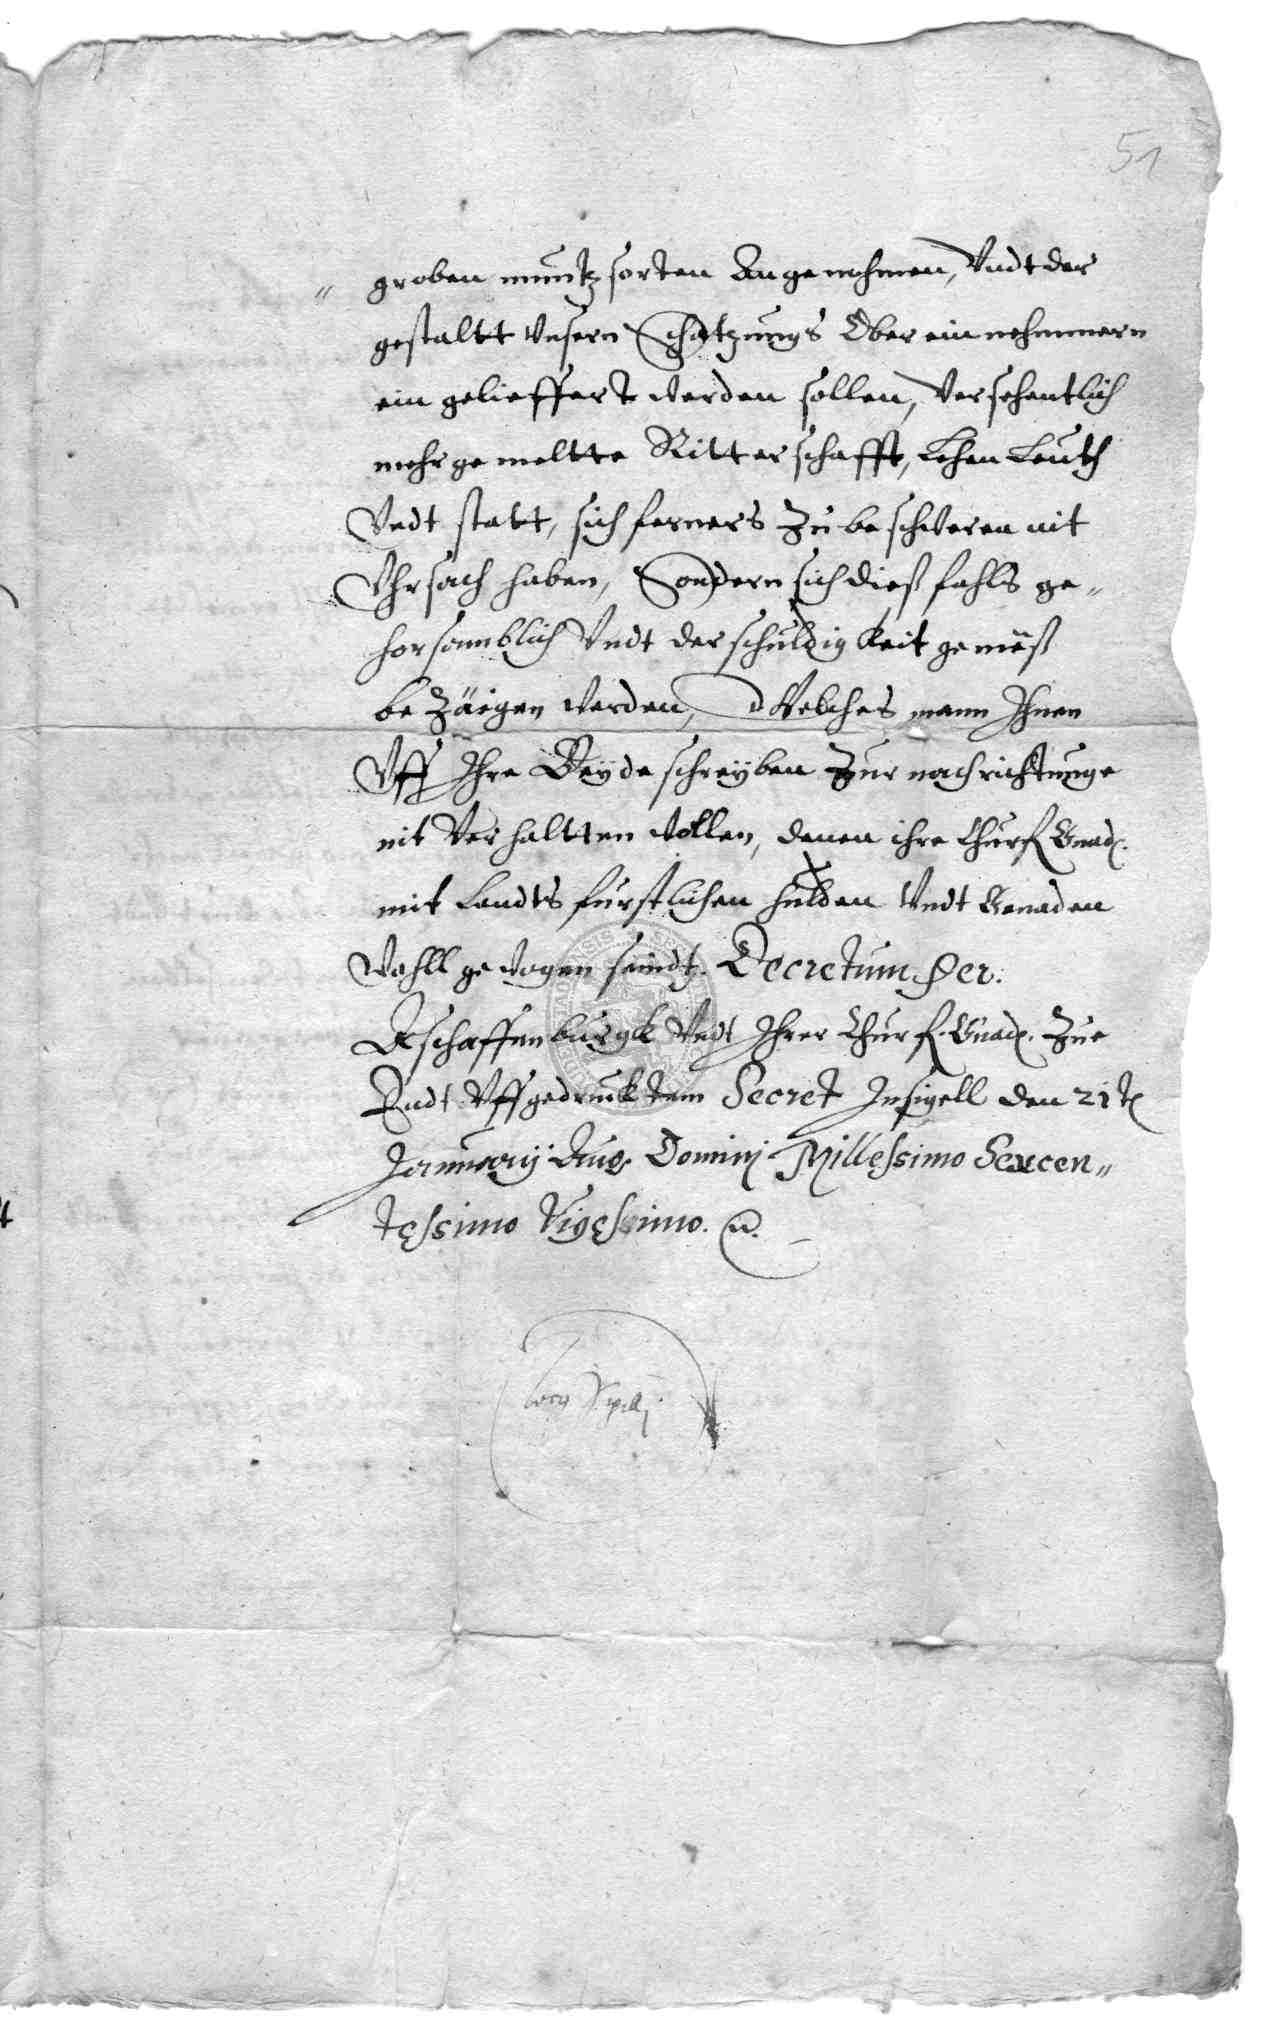 51
" groben muntz sorten Angenohmen, Vndt der
gestaltt Vnsern Schatzungs Ober einnehmmern
ein gelieffert werden sollen, Versehentlich
mehrgemeltte Ritterschafft, Lehen Leuth
Vndt statt, sich ferners Zu beschweren nit
Vhrsach haben, Sondern sich dieß fahls ge„
horsamblich Vndt der schuldigkeit gemeß
bezäigen werden, Welches mann Ihnen
Vff Ihre Beyde schreyben Zur nachrichtunge
nit Verhaltten wollen, denen ihre Churf. Gnad.
mit Landts fürstlichen hulden Vndt Genaden
Wohll gewogen seindt. Decretum Ser.
Aschaffenburgk Vndt Ihrer Churf. Gnad. Zue
Endt Vffgedrucktem Secret Insigell den 21t
Januarij Domini Millessimo Sexcen„
tessimo Vigessimo.
Locus Sigilli